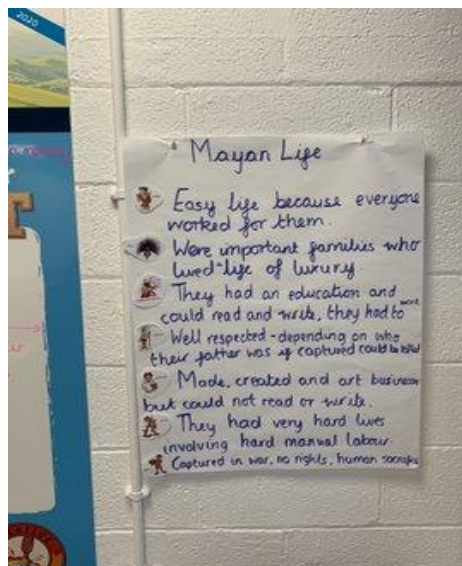 2020
Mayan Life
Easy life because everyone
worked for them.
Were important families who
lived-life of luxury
They had an education and
could read and write, they had to work
Well respected-depending on who
their father was if captured could be killed
Made, created and art business
but could not read or write.
They had very hard lives
involving hard manual labour.
Captured in war, no rights, human sacrifice